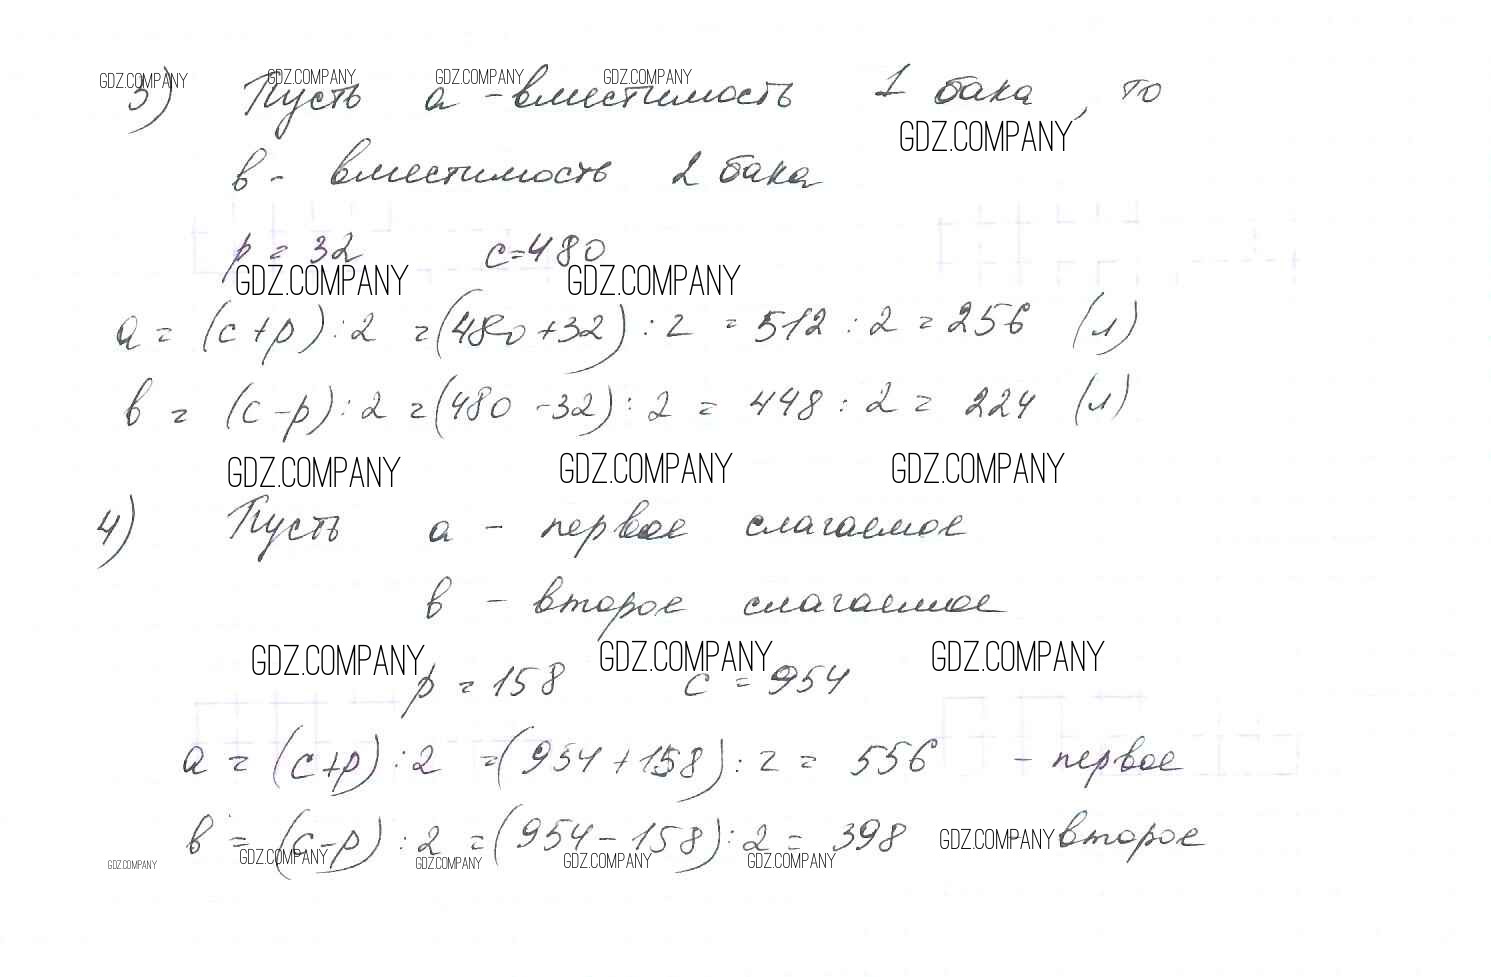 GDZ.COMPANY GDZ.COMPANY GDZ.COMPANY GDZ.COMPANY
3) Пусть a - вместимость 1 бака, то
GDZ.COMPANY
в - вместимость 2 бака
p = 32 c = 480
GDZ.COMPANY GDZ.COMPANY
a = (c + p) : 2 = (480 + 32) : 2 = 512 : 2 = 256 (л)
в = (c - p) : 2 = (480 - 32) : 2 = 448 : 2 = 224 (л)
GDZ.COMPANY GDZ.COMPANY GDZ.COMPANY
4) Пусть a - первое слагаемое
в - второе слагаемое
GDZ.COMPANY GDZ.COMPANY GDZ.COMPANY
p = 158 c = 954
a = (c + p) : 2 = (954 + 158) : 2 = 556 - первое
в = (c - p) : 2 = (954 - 158) : 2 = 398 - второе
GDZ.COMPANY
GDZ.COMPANY GDZ.COMPANY GDZ.COMPANY GDZ.COMPANY GDZ.COMPANY